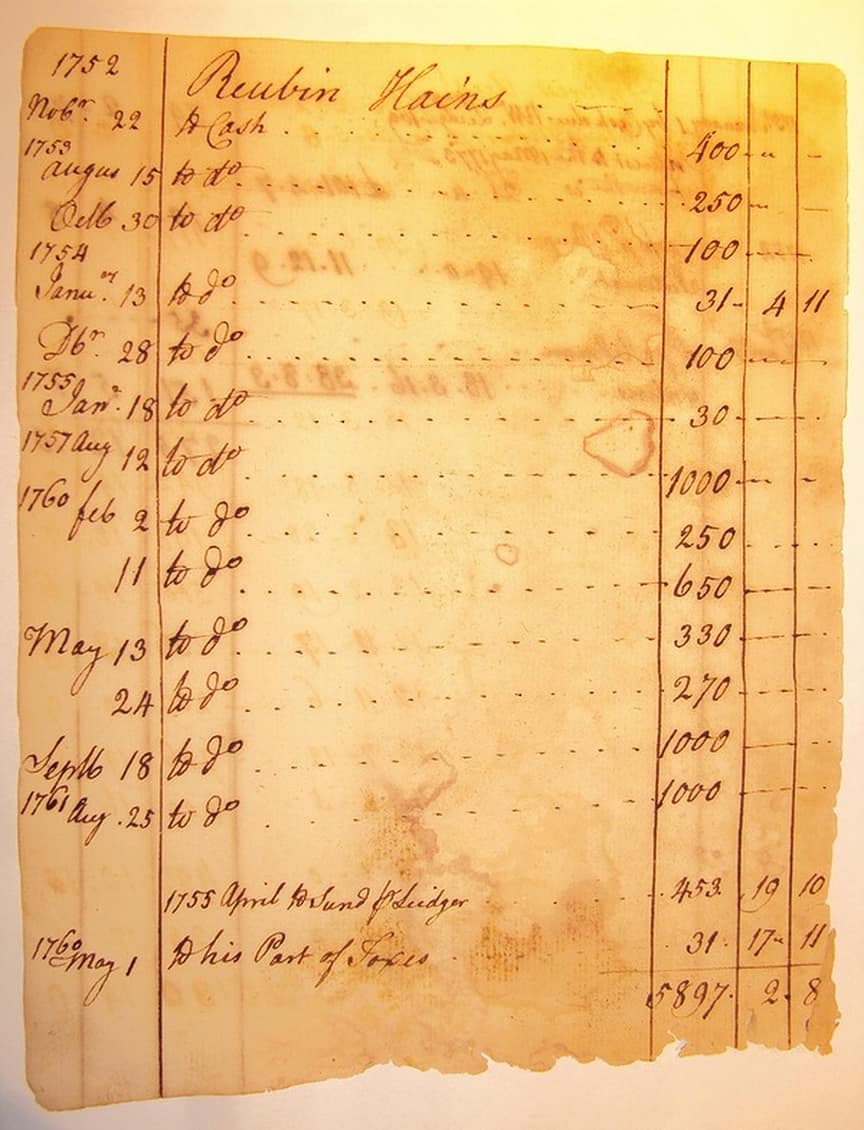 1752 Reubin Hains
Nobr. 22 to Cash 400 - -
1753
Augus 15 to do 250 - -
Octb 30 to do 100 - -
1754
Janu.ry 13 to do 31 - 4 11
Dbr. 28 to do 100 - -
1755
Janr. 18 to do 30 - -
1757 Aug 12 to do 1000 - -
1760 feb 2 to do 250 - -
11 to do 650 - -
May 13 to do 330 - -
24 to do 270 - -
Septb 18 to do 1000 - -
1761 Aug. 25 to do 1000 - -
1755 April to Sund pr Ledger 453. 19 10
1760 May 1 to his Part of Taxes 31. 17 11
5897. 2. 8